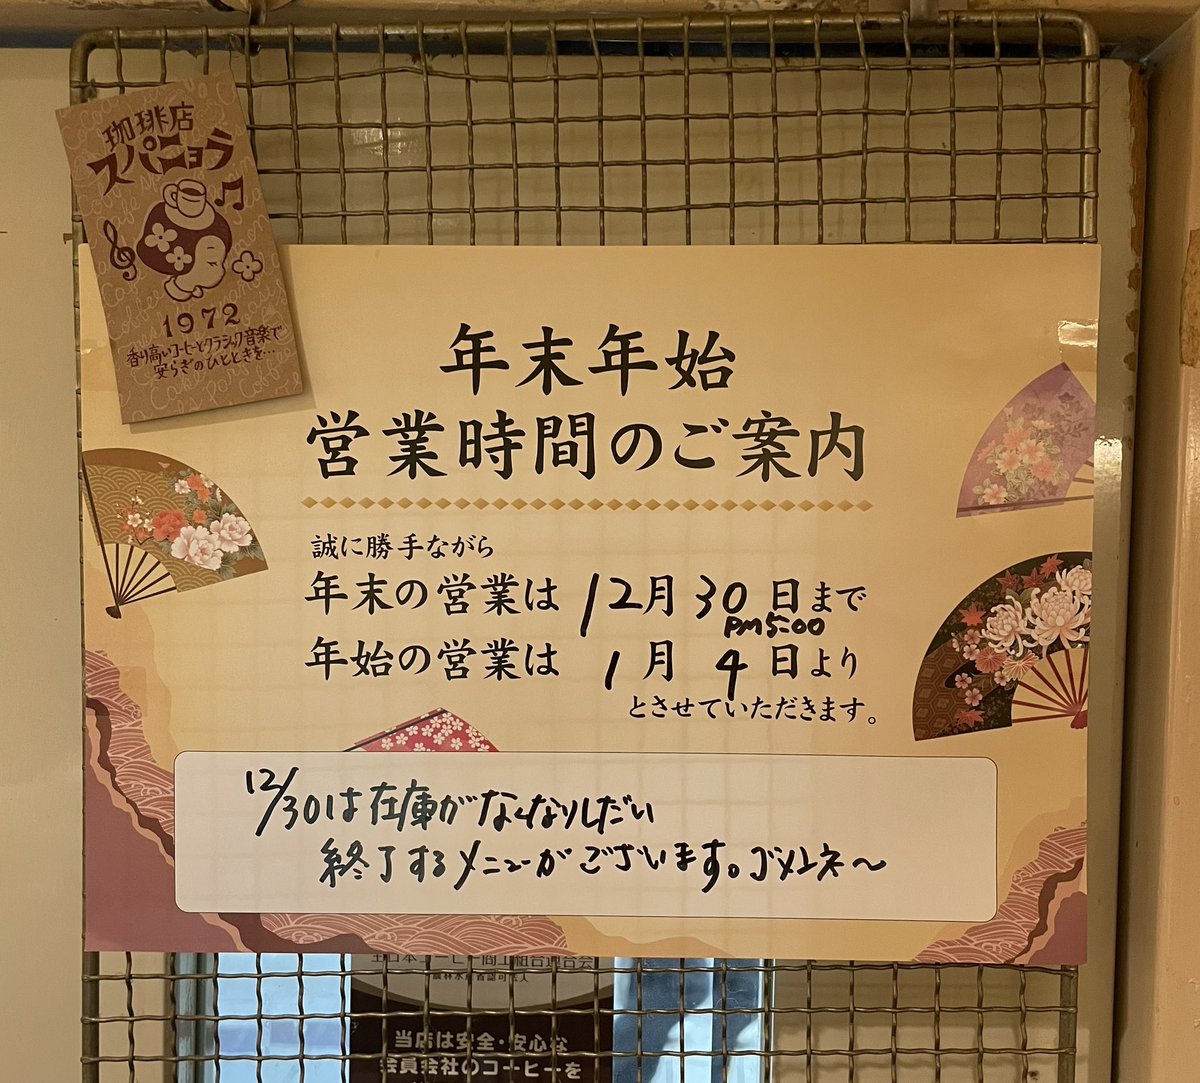 珈琲店
スパニョラ
1972
香り高いコーヒーとクラシック音楽で
安らぎのひとときを…
年末年始
営業時間のご案内
誠に勝手ながら
年末の営業は 12月30日まで
PM5:00
年始の営業は 1月4日より
とさせていただきます。
12/30は在庫がなくなりしだい
終了するメニューがございます。ゴメンネ〜
全日本コーヒー商工組合連合会
農林水産省認可法人
当店は安全・安心な
会員会社のコーヒーを